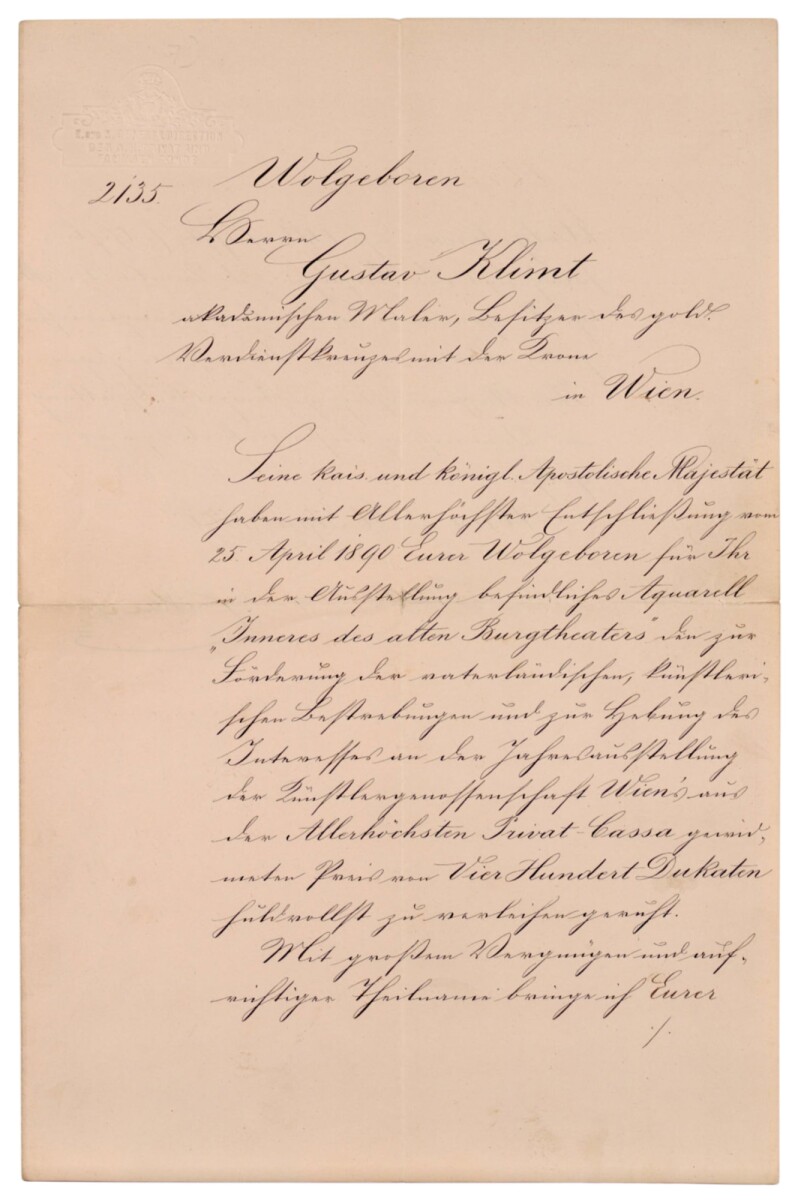 Wolgeboren
2135.
Herrn
Gustav Klimt
akademischen Maler, Besitzer des gold.
Verdienstkreuzes mit der Krone
in Wien.
Seine kais. und königl. Apostolische Majestät
haben mit Allerhöchster Entschließung vom
25. April 1890 Eurer Wolgeboren für Ihr
in der Ausstellung befindliches Aquarell
„Inneres des alten Burgtheaters" den zur
Förderung der vaterländischen, künstleri-
schen Bestrebungen und zur Hebung des
Interesses an der Jahresausstellung
der Künstlergenossenschaft Wien's aus
der Allerhöchsten Privat-Cassa gewid-
meten Preis von Vier Hundert Dukaten
huldvollst zu verleihen geruht.
Mit großem Vergnügen und auf-
richtiger Theilname bringe ich Eurer
./.